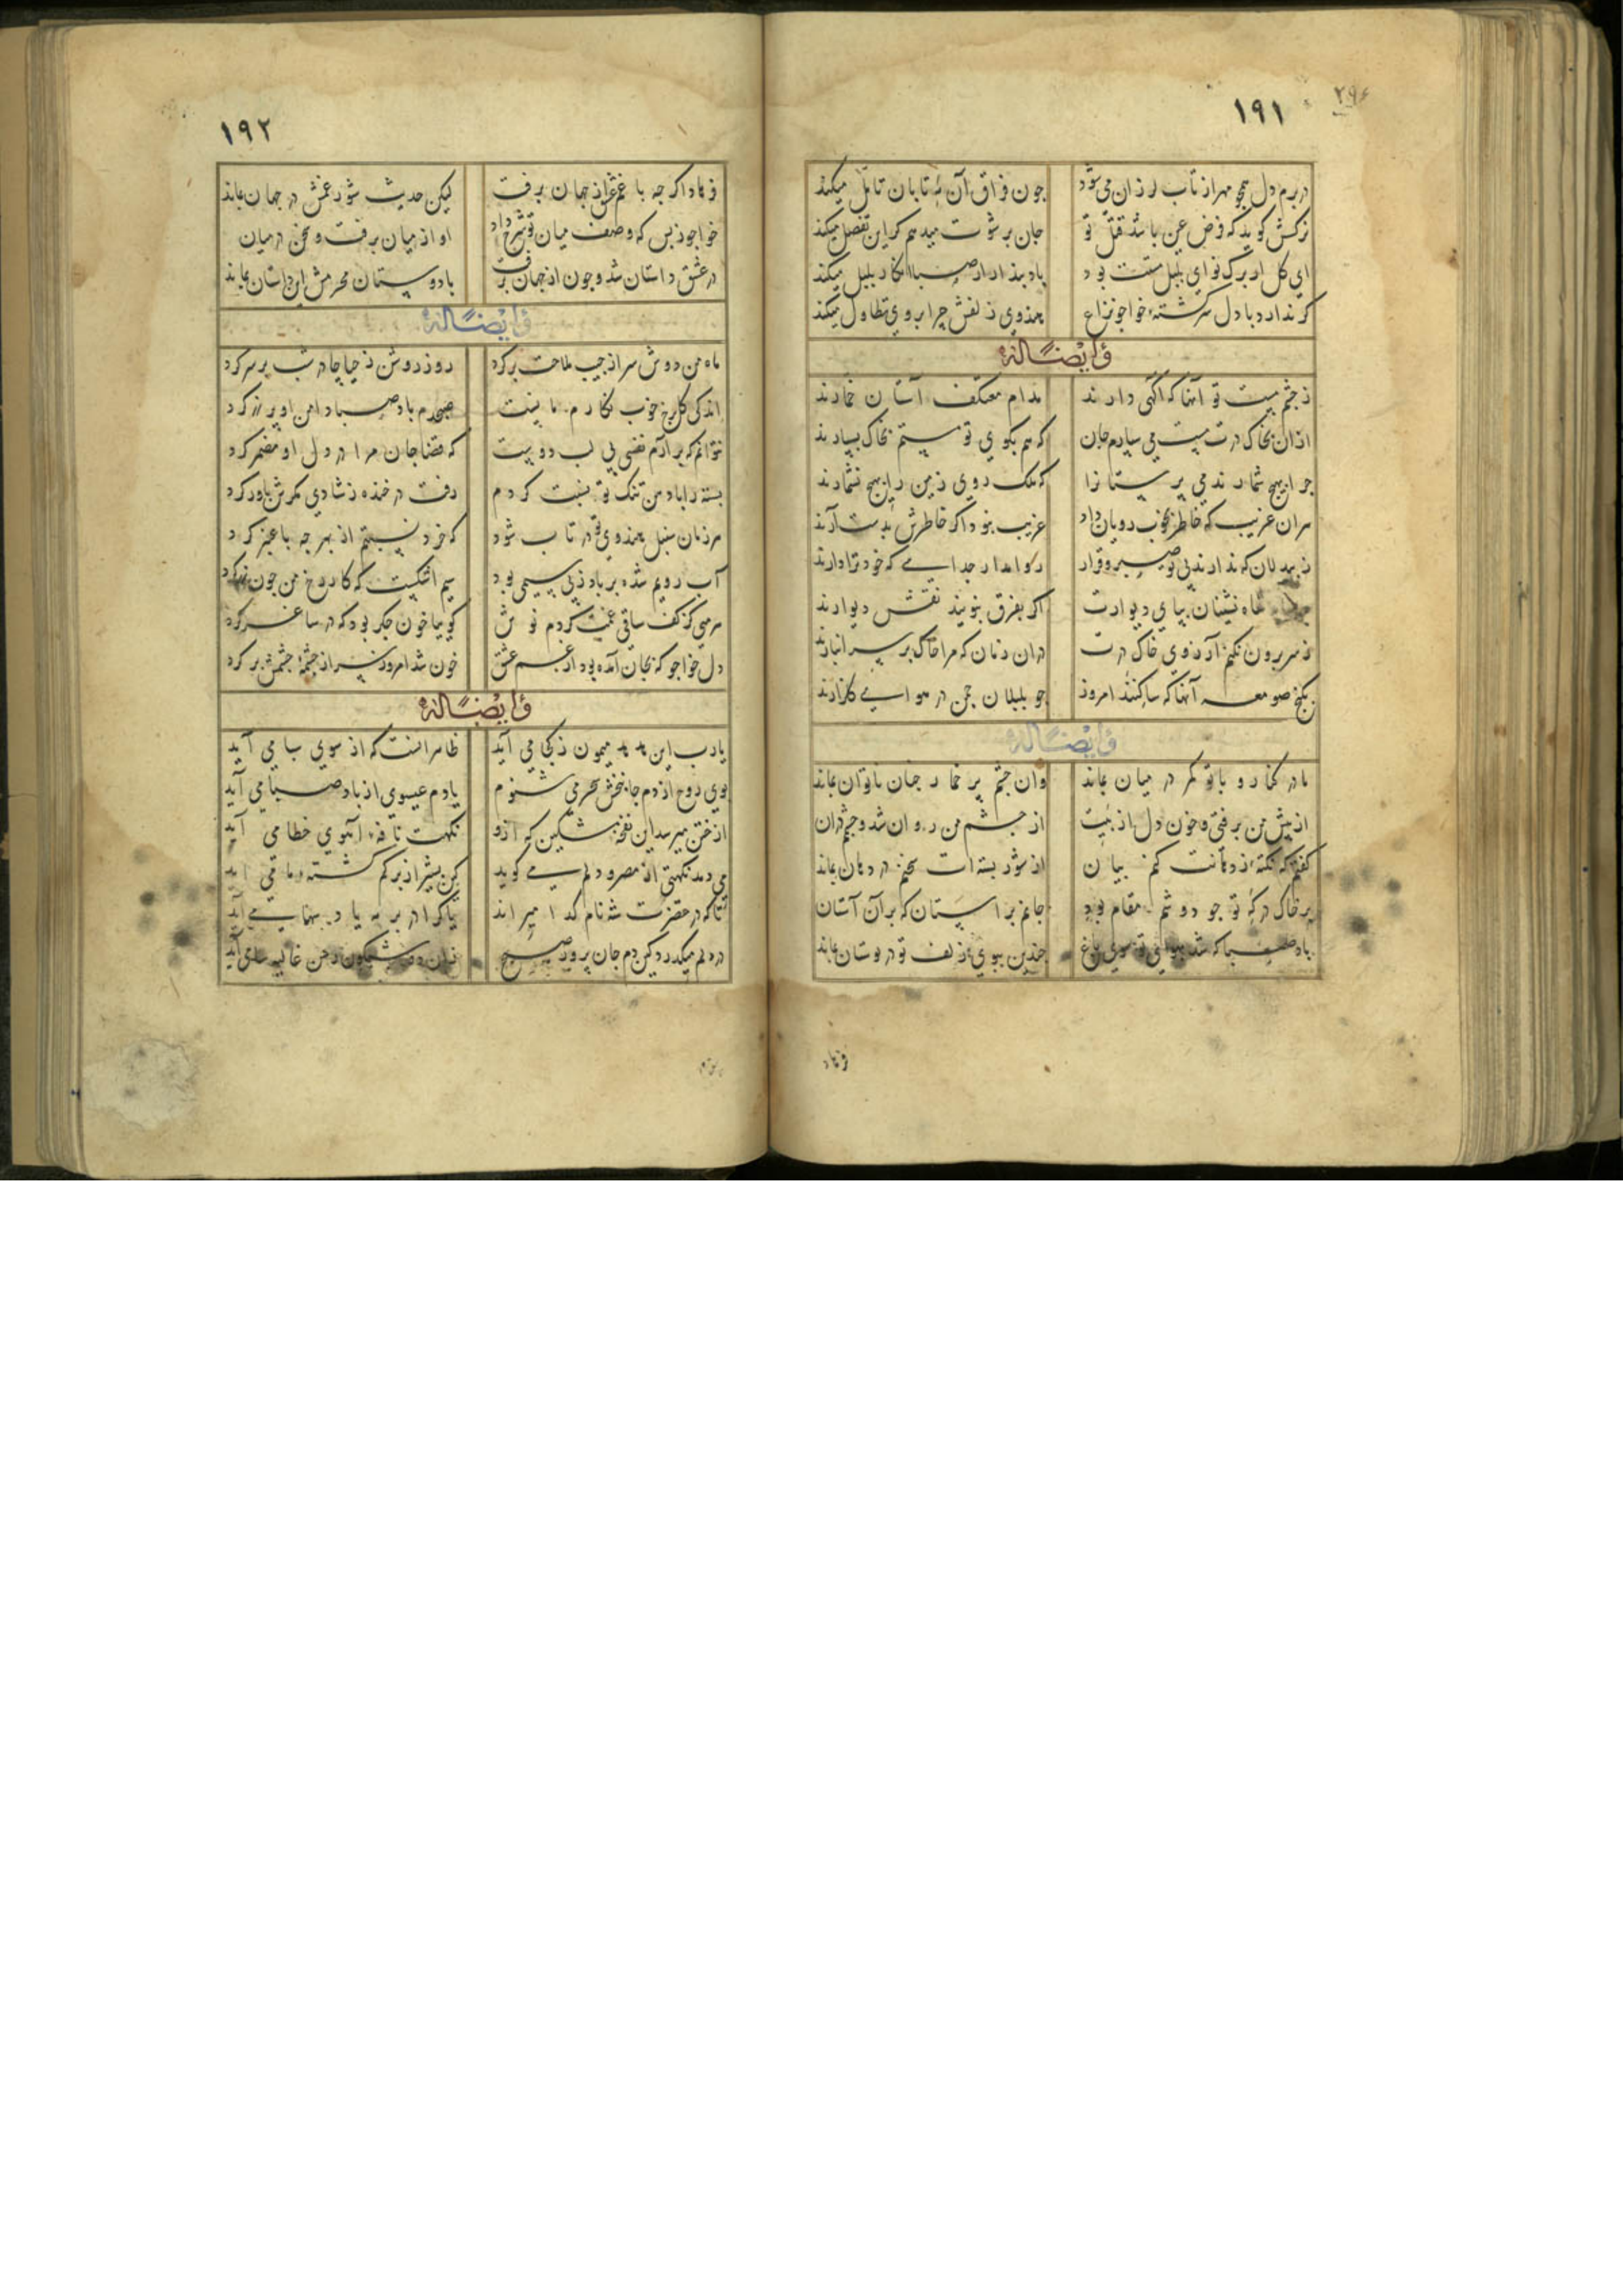 ۱۹۱
در برم دل همچو مهر از تاب لرزان می شود
چون فراق آن مه تابان تامل میکند
نرکسش کوید که فرض عین باشد قتل تو
جان بر شوت میدهم کر این تفضل میکند
ای کل ار برک نوای بلبل مستت بود
باد بندار از صبا کار بلبل میکند
کر ندارد با دل سرکشته خواجو نزاع
هندوی زلفش چرا بر وی تطاول میکند
وایضاً له
ز چشم مست تو آنها که آکهی دارند
مدام معتکف آستان خمارند
از ان بخاک درت مست می سپارم جان
که هم بکوی تو مستم بخاک بسپارند
چرا بهیچ شمارند می پرستانرا
که ملک روی زمین را بهیچ نشمارند
هر ان غریب که خاطر بخوب رویان داد
غریب نبود اکر خاطرش بدست آرند
ز بیدلان که ندارند بی تو صبر و قرار
روا مدار جدایی که خود ترا دارند
نشینان بپای دیوارت
اکر بفرق نپویند نقش دیوارند
ز سر برون نکنم آرزوی خاک درت
در ان زمان که مرا خاک بر سر انبارند
بکنج صومعه آنها که ساکنند امروز
چو بلبلان چمن در هوای کلزارند
وایضاً له
ما در کنار و با تو کمر در میان بماند
وان چشم پر خمار چنان ناتوان بماند
از پیش من برفتی و خون دل از پیت
از چشم من روان شد و چشمم در ان
کفتم که نکته از دهانت کنم بیان
از شور بسته ات سخنم در دهان بماند
بر خاک درکه تو چو دوشم مقام بود
جانم بر استان که بر آن آستان
باد صبا که شد بهوای تو سوی باغ
چندین ببوی زلف تو در بوستان بماند
فرهاد
۱۹۲
فرهاد اکر چه با غم عشق از جهان برفت
لیکن حدیث شور غمش در جهان بماند
خواجو ز بس که وصف میان تو شرح داد
او از میان برفت و سخن در میان
در عشق داستان شد و چون از جهان برفت
با دوستان محرمش این داستان بماند
وایضاً له
ماه من دوش سر از جیب ملاحت بر کرد
روز روشن ز حیا چادر شب بر سر کرد
اندکی کل برخ خوب نکارم مانست
صبحدم باد صبا دامن او پر زر کرد
نتوانم که بر آرم نفسی بی لب دوست
که قضا جان مرا در دل او مضمر کرد
پسته را با دهن تنک تو نسبت کردم
رفت در خنده ز شادی مکرش باور کرد
هر زمان سنبل هندوی تو در تاب شود
که خرد نسبتم از بهر چه با عنبر کرد
آب رویم شده بر باد ز بی سیمی بود
سیم اشکست که کار رخ من چون زر کرد
هر می کز کف ساقی غمت کردم نوش
کوییا خون جکر بود که در ساغر کرد
دل خواجو که بجان آمده بود از غم عشق
خون شد امروز و سر از چشمه چشمش بر کرد
وایضاً له
یا رب این هدهد میمون ز کجا می آید
ظاهر انست که از سوی سبا می آید
بوی روح از دم جانبخش سحر می شنوم
یا دم عیسوی از باد صبا می آید
از ختن میرسد این نفحه مشکین که ازو
نکهت نافه آهوی خطا می آید
می دهد نکهتی از مصر و دلم می کوید
تا که در حضرت شه نام کدا میراند
در دلم میکذرد کین دم جان پرور صبح